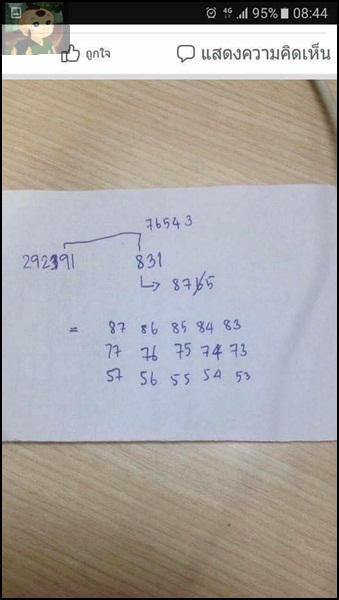 4G 95% 08:44
ถูกใจ แสดงความคิดเห็น
76543
292391 831
↳ 8765
= 87 86 85 84 83
77 76 75 74 73
57 56 55 54 53